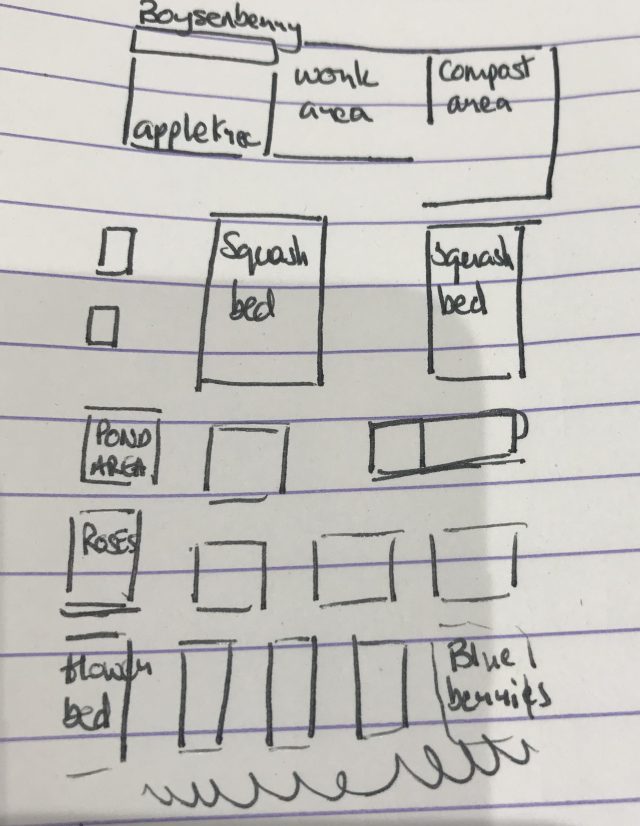 Boysenberry
work
area
compost
area
appletree
Squash
bed
squash
bed
POND
AREA
ROSES
flower
bed
Blue
berries